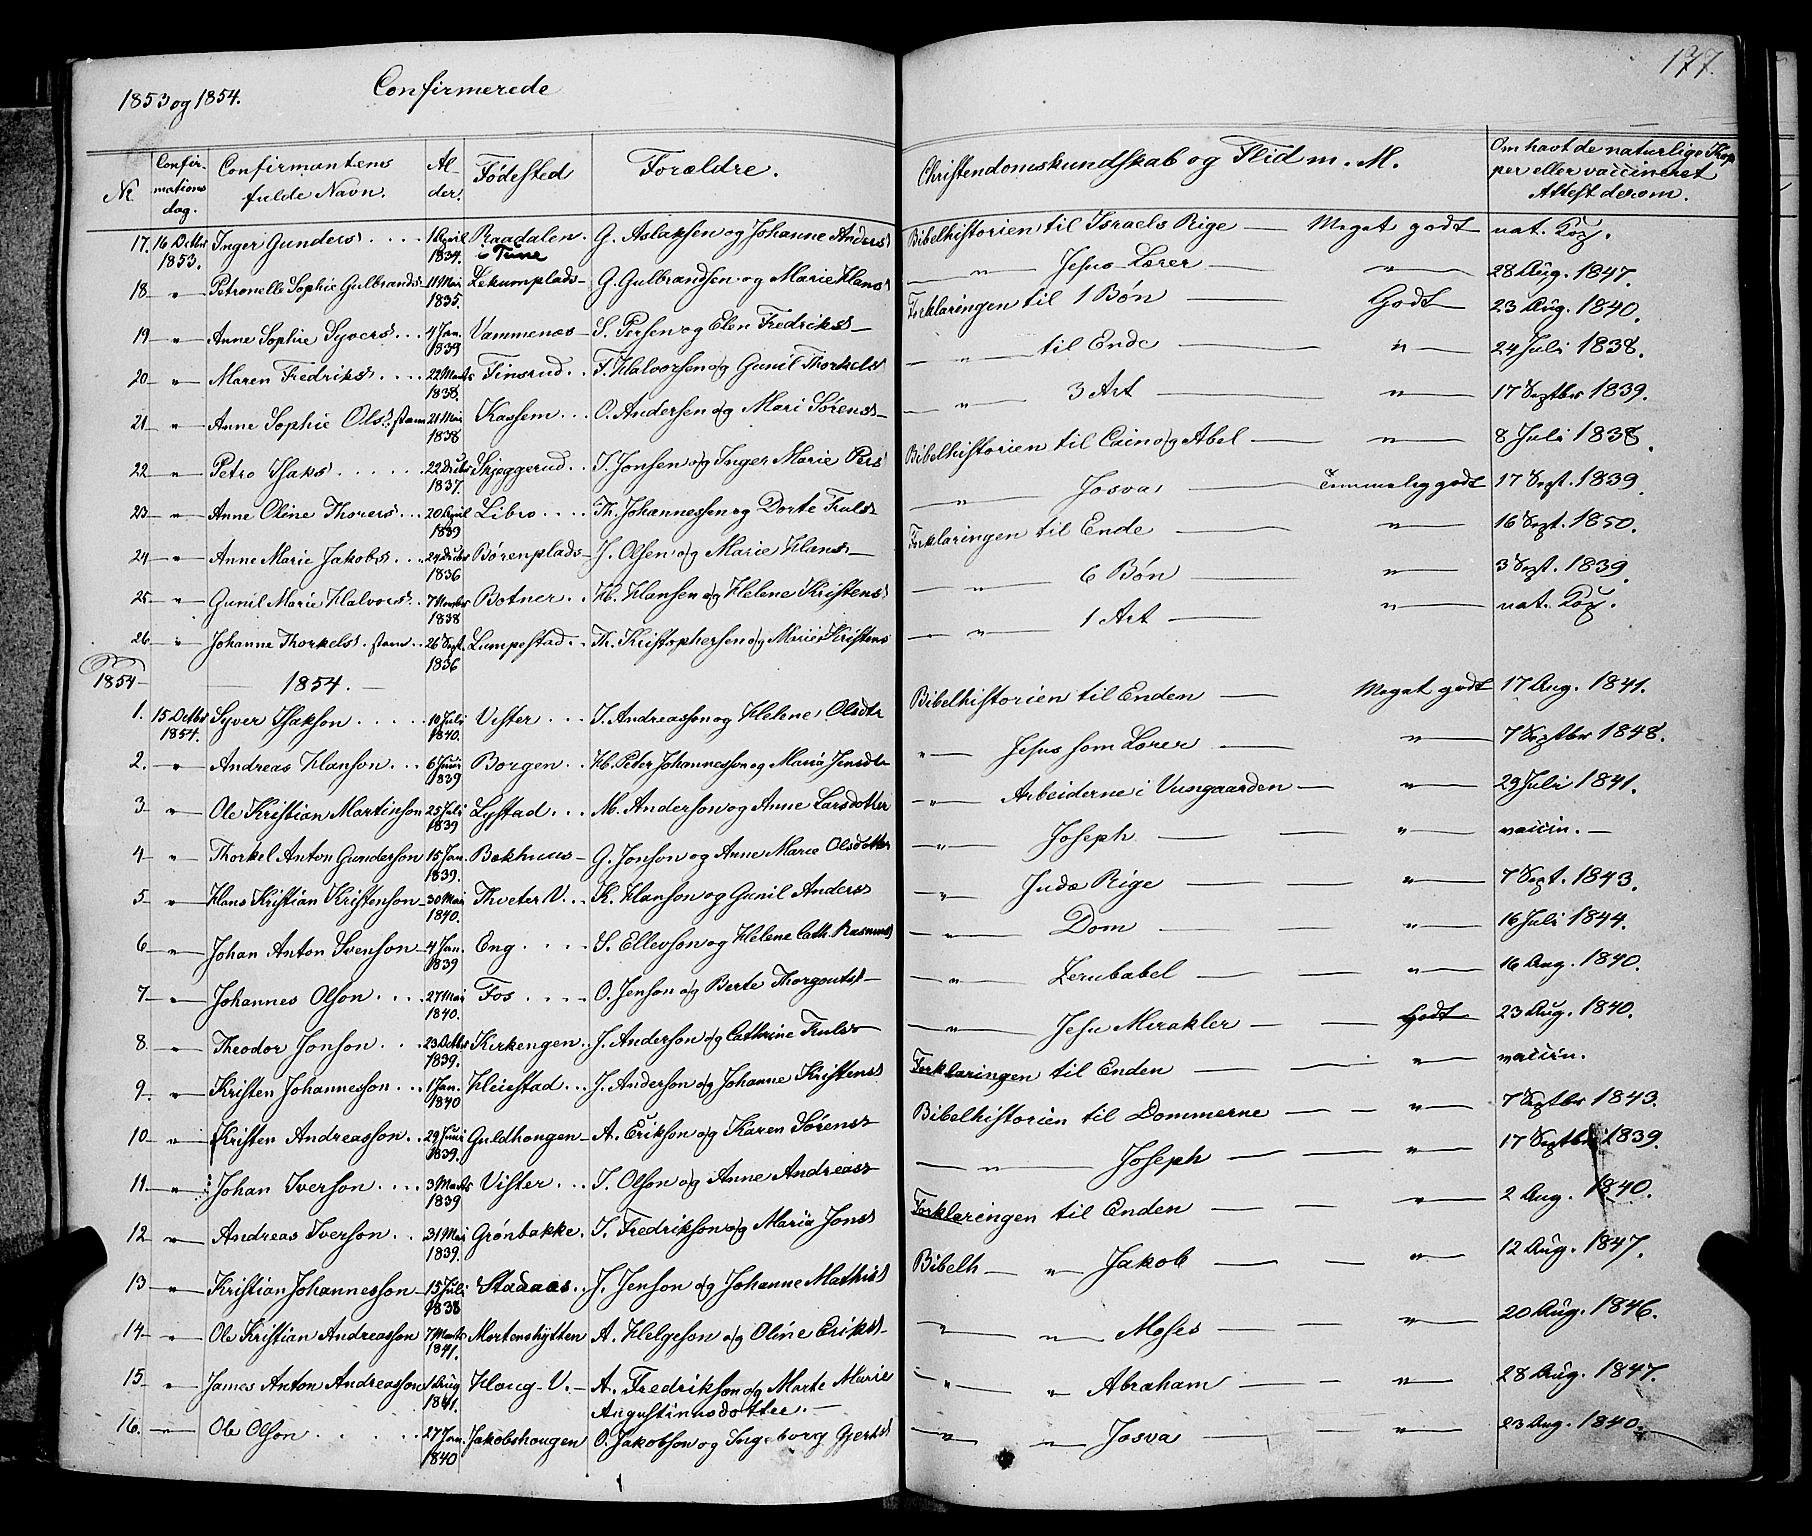 1853 og 1854. Confirmerede
177.
No Confirmations dag. Confirmantens fulde Navn. Alder. Fødested Forældre. Christendomskundskab og Flid m. M. Om havt de naturlige Kopper eller vaccineret Attest derom.
17. 16 Octbr 1853. Inger Gunders 1 April 1834. Raadalen i Tune G. Aslaksen og Johanne Anders Bibelhistorien til Israels Rige — Meget godt nat. Kop.
18 " Petronelle Sophie Gulbrands 11 Mai 1835. Lekumplads G. Gulbrandsen og Marie Hans — " — Jesus Lærer — " — 28 Aug. 1847.
19 " Anne Sophie Syvers 4 Jan. 1839 Vammenæs S. Persen og Elen Fredriks Forklaringen til 1 Bøn — Godt 23 Aug. 1840.
20 " Maren Fredriks 22 Marts 1838. Finsrud F. Halvorsen og Gunil Thorkels — " — til Ende — " — 24 Juli 1838.
21 " Anne Sophie Ols 21 Mai 1838 Kassem O. Andersen og Mari Sørens — " — 3 Art — " — 17 Septbr 1839.
22 " Petro Isaks 22 Decbr 1837. Skjeggerud I. Jonsen og Inger Marie Pers Bibelhistorien til Cain og Abel — " — 8 Juli 1838.
23 " Anne Oline Thorers 20 April 1839 Libro Th. Johannessen og Dorte Truls — " — Josva — Temmelig godt 17 Sept. 1839.
24 " Anne Marie Jakobs 24 Decbr 1836 Børenplads J. Olsen og Marie Hans Forklaringen til Ende — " — 16 Sept. 1850.
25 " Gunil Marie Halvors 7 Novbr 1838 Botner H. Hansen og Helene Kristens — " — 6 Bøn — " — 3 Sept. 1839.
26 " Johanne Thorkels 26 Sept. 1836 Lumpestad Th. Kristophersen og Marie Kristens — " — 1 Art — " — nat. Kop.
1854 — 1854. —
1. 15 Octbr 1854. Syver Isakson 10 Juli 1840. Vister I. Andreasson og Helene Olsdtr Bibelhistorien til Enden — Meget godt 17 Aug. 1841.
2. " Andreas Hanson 6 Juni 1839 Borgen H. Peter Johannesson og Maria Jensdtr " — Jesus som Lærer — " — 7 Septbr 1848.
3 " Ole Kristian Martinson 25 Juli 1839 Lystad M. Anderson og Anne Larsdotter " — Arbeiderne i Viingaarden — " — 29 Juli 1841.
4 " Thorkel Anton Gunderson 15 Jan. 1839. Bækhuus G. Jonson og Anne Marie Olsdotter " — Joseph — " — vaccin. —
5 " Hans Kristian Kristenson 30 Mai 1840. Thveter V. K. Hanson og Gunil Anders " — Judæ Rige — " — 7 Sept. 1843.
6 " Johan Anton Svenson 4 Jan. 1839 Eng S. Ellevson og Helene Cath. Rasmus " — Dom — " — 16 Juli 1844.
7 " Johannes Olson 27 Mai 1840. Fos O. Jenson og Berte Thorgouts " — Zerubabel — " — 16 Aug. 1840.
8 " Theodor Jonson 23 Octbr 1839. Kirkengen J. Anderson og Cathrine Truls — " — Jesu Mirakler — Godt 23 Aug. 1840.
9 " Kristen Johannesson 1 Jan. 1840 Heiestad J. Anderson og Johanne Kristens Forklaringen til Enden — " — vaccin.
10 " Kristen Andreasson 29 Juni 1839. Guldhougen A. Erikson og Karen Sørens Bibelhistorien til Dommerne — " — 7 Septbr 1843.
11 " Johan Iverson 3 Marts 1839 Vister I. Olson og Anne Andreas — " — Joseph — " — 17 Septbr 1839.
12 " Andreas Iverson 31 Mai 1839. Grønbakke I. Fredrikson og Maria Jons Forklaringen til Enden — " — 2 Aug. 1840.
13 " Kristian Johannesson 15 Juli 1838 Stadaas J. Jenson og Johanne Mathis Bibelh — " — Jakob — " — 12 Aug. 1847.
14 " Ole Kristian Andreasson 7 Marts 1841. Mortenshytten A. Helgeson og Oline Eriks " — " — Moses — " — 20 Aug. 1846.
15 " James Anton Andreasson 1 Aug 1841. Houg V. A. Fredrikson og Marte Marie Augustinusdotter. " — " — Abraham — " — 28 Aug. 1847.
16. " Ole Olson 27 Jan. 1840 Jakobshougen O. Jakobson og Ingeborg Gjerts " — " — Josva — " — 23 Aug. 1840.